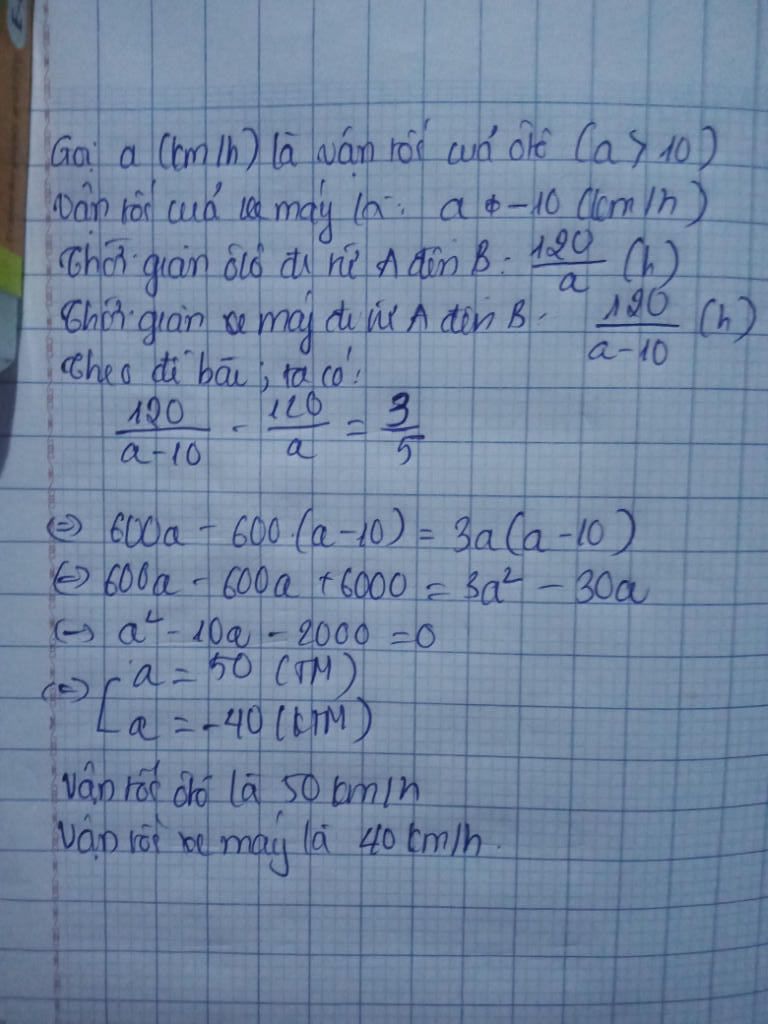 Gọi a (km/h) là vận tốc của ôtô (a > 10)
Vận tốc của xe máy là: a - 10 (km/h)
Thời gian ôtô đi từ A đến B: 120/a (h)
Thời gian xe máy đi từ A đến B: 120/(a-10) (h)
Theo đề bài, ta có:
120/(a-10) - 120/a = 3/5
⇔ 600a - 600.(a-10) = 3a(a-10)
⇔ 600a - 600a + 6000 = 3a² - 30a
⇔ a² - 10a - 2000 = 0
⇔ [ a = 50 (TM)
a = -40 (KTM)
Vận tốc ôtô là 50 km/h
Vận tốc xe máy là 40 km/h.